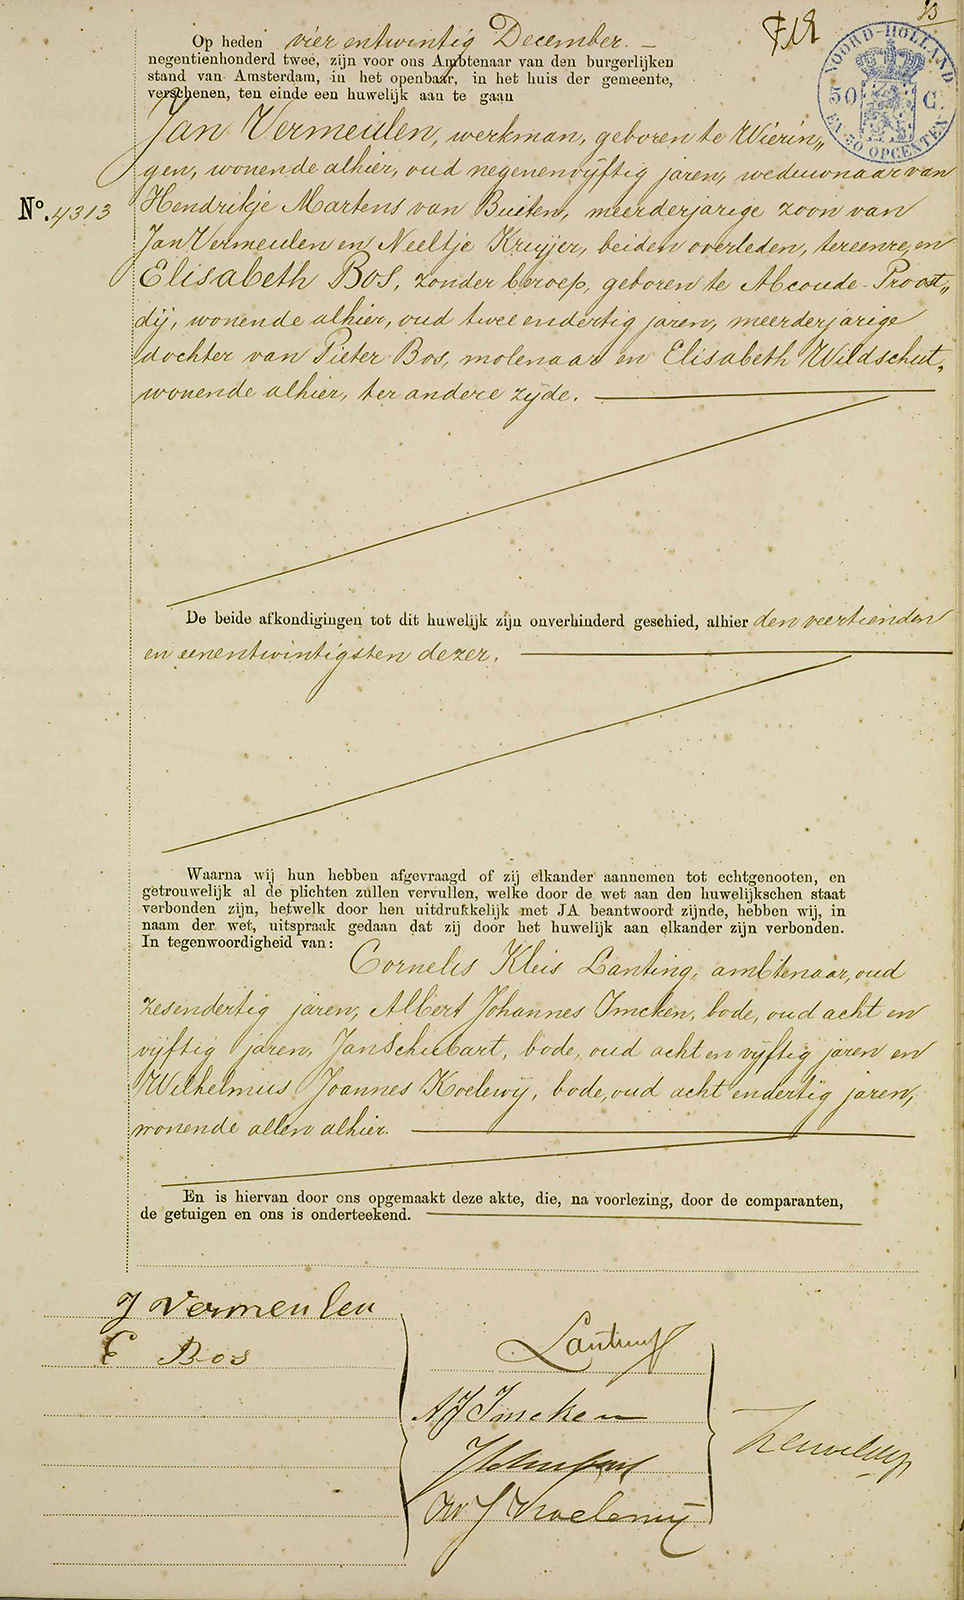 13
NOORD-HOLLAND
50 C.
EN 50 OPCENTEN
Op heden vier entwintig December.
negentienhonderd twee, zijn voor ons Ambtenaar van den burgerlijken
stand van Amsterdam, in het openbaar, in het huis der gemeente,
verschenen, ten einde een huwelijk aan te gaan
Jan Vermeulen, werkman, geboren te Wierin„
gen, wonende alhier, oud negenenvijftig jaren, weduwnaar van
No. 4313
Hendrikje Martens van Buiten, meerderjarige zoon van
Jan Vermeulen en Neeltje Kruijer, beiden overleden, ter eenre, en
Elisabeth Bos, zonder beroep, geboren te Abcoude-Proost„
dij, wonende alhier, oud twee endertig jaren, meerderjarige
dochter van Pieter Bos, molenaar en Elisabeth Wildschut,
wonende alhier, ter andere zijde.
De beide afkondigingen tot dit huwelijk zijn onverhinderd geschied, alhier den veertienden
en eenentwintigsten dezer.
Waarna wij hun hebben afgevraagd of zij elkander aannemen tot echtgenooten, en
getrouwelijk al de plichten zullen vervullen, welke door de wet aan den huwelijkschen staat
verbonden zijn, hetwelk door hen uitdrukkelijk met JA beantwoord zijnde, hebben wij, in
naam der wet, uitspraak gedaan dat zij door het huwelijk aan elkander zijn verbonden.
In tegenwoordigheid van:
Cornelis Kleis Lanting, ambtenaar, oud
zesendertig jaren, Albert Johannes Imcken, bode, oud acht en
vijftig jaren, Jan Schubart, bode, oud acht en vijftig jaren en
Wilhelmus Joannes Koelewij, bode, oud acht endertig jaren,
wonende allen alhier.
En is hiervan door ons opgemaakt deze akte, die, na voorlezing, door de comparanten,
de getuigen en ons is onderteekend.
J Vermeulen
E Bos
Lanting
AJ Imcken
W J Koelewij